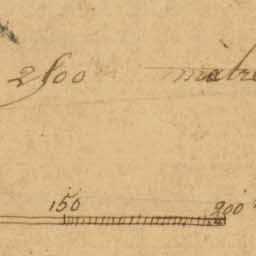 2500 mètre
150 200